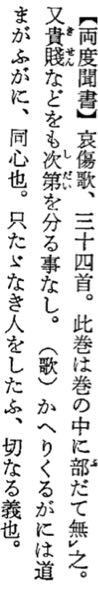 【両度聞書】哀傷歌、三十四首。此巻は巻の中に部だて無㆑之。
又貴賤などをも次第を分る事なし。(歌)かへりくるがには道
まがふがに、同心也。只たゞなき人をしたふ、切なる義也。